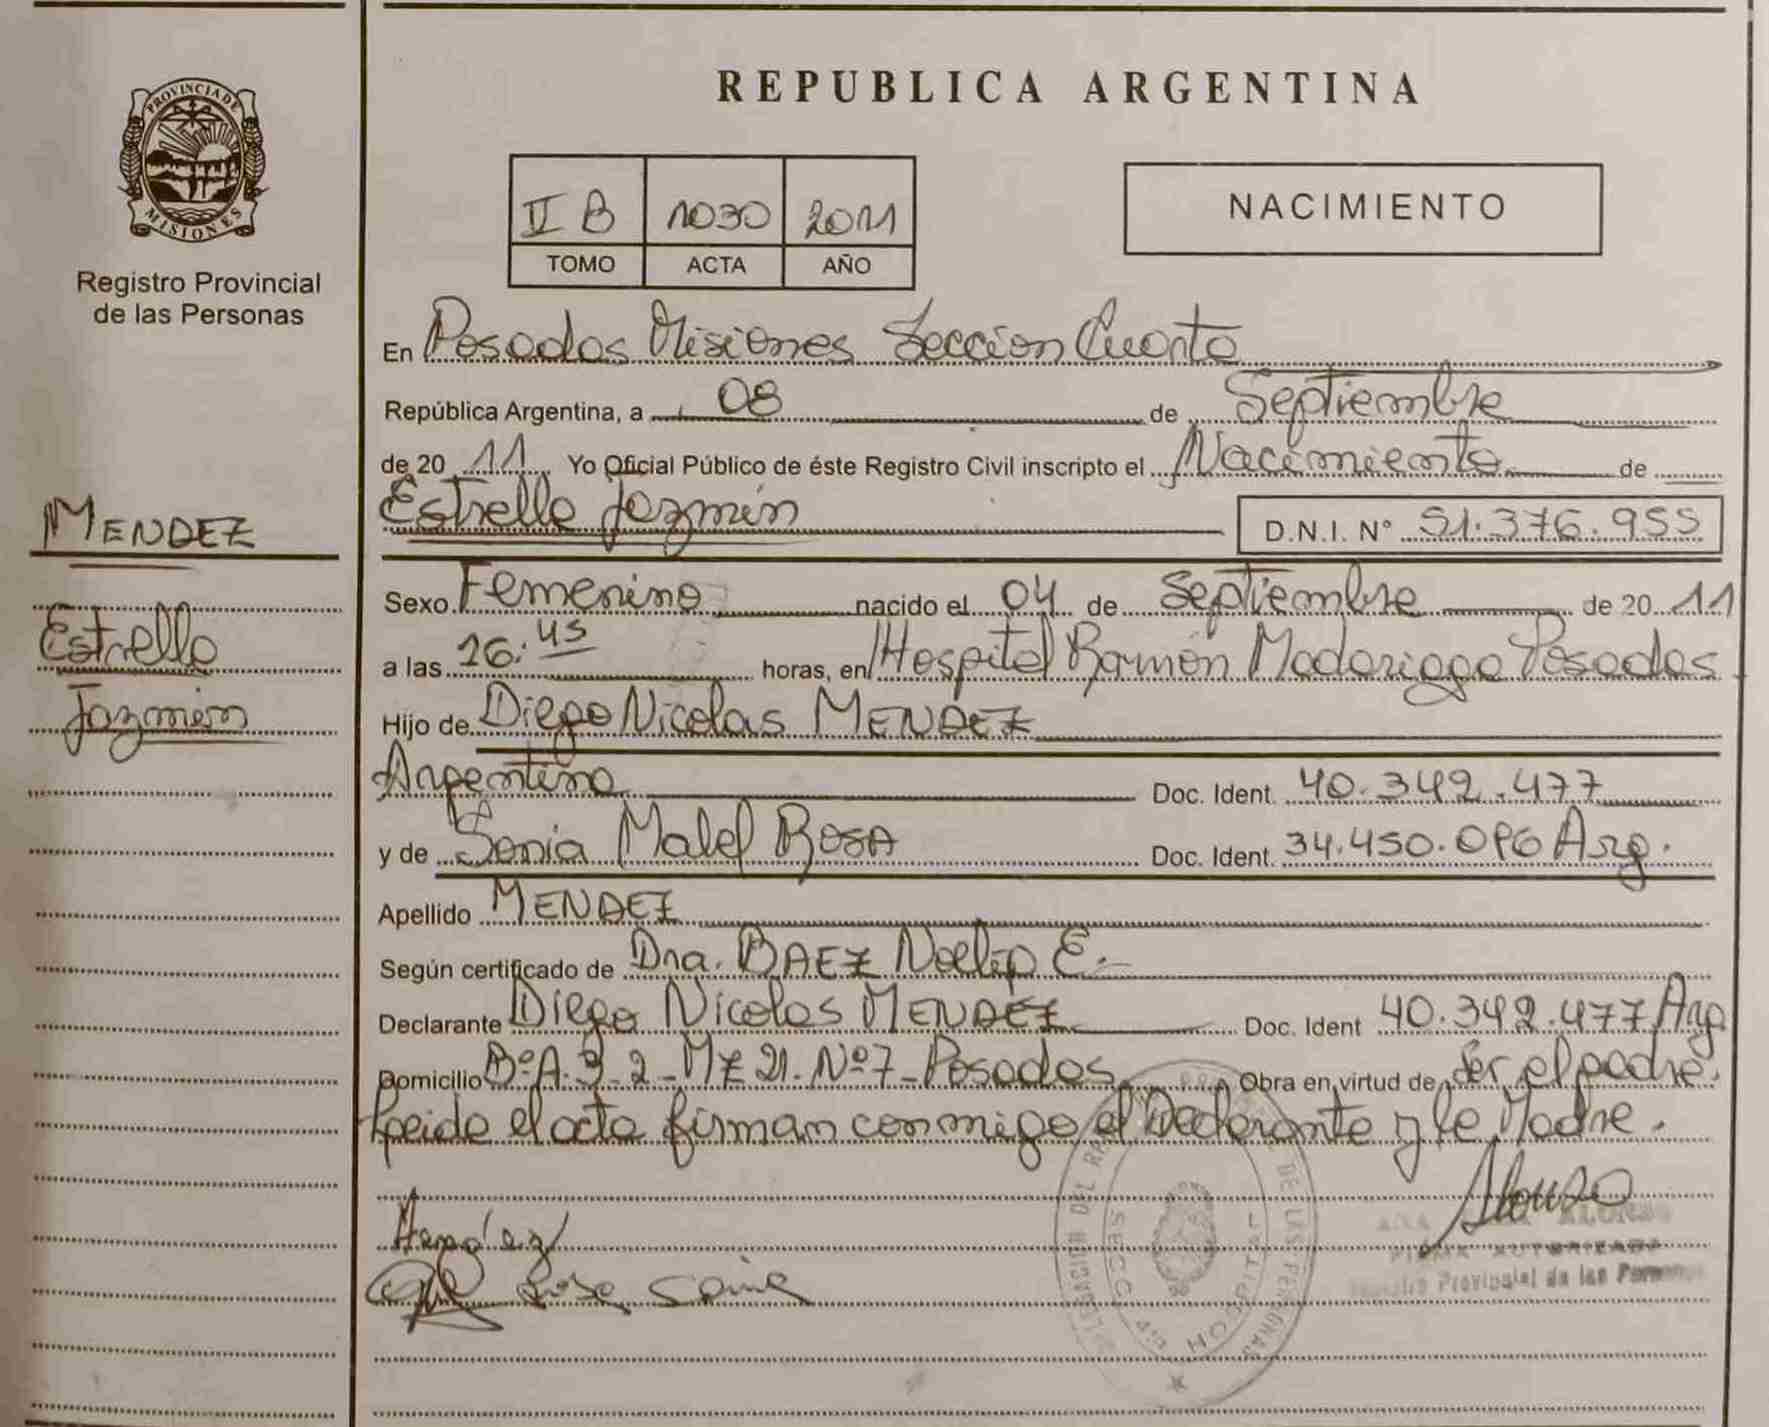 PROVINCIA DE
MISIONES
Registro Provincial
de las Personas
MENDEZ
Estrella
Jazmín
REPUBLICA ARGENTINA
II B 1030 2011
TOMO ACTA AÑO
NACIMIENTO
En Posadas Misiones Sección Cuarta
República Argentina, a 08 de Septiembre
de 20 11 Yo Oficial Público de éste Registro Civil inscripto el Nacimiento de
Estrella Jazmín D.N.I. N° 51.376.955
Sexo Femenino nacido el 04 de Septiembre de 20 11
a las 16:45 horas, en Hospital Ramón Madariaga Posadas
Hijo de Diego Nicolas MENDEZ
Argentino Doc. Ident. 40.342.477
y de Sonia Mabel ROSA Doc. Ident. 34.450.096 Arg.
Apellido MENDEZ
Según certificado de Dra. BAEZ Noelia E.
Declarante Diego Nicolas MENDEZ Doc. Ident 40.342.477 Arg
Domicilio Bº A.3.2 - Mz 21. Nº 7 - Posadas Obra en virtud de ser el padre.
Leída el acta firman conmigo el Declarante y la Madre.
Alonso
ALONSO
FIRMA AUTORIZADA
Registro Provincial de las Personas
Mendez
Rosa Sonia
DELEGACION DEL DE LAS PERSONAS
SECC 4ta HOSPITAL